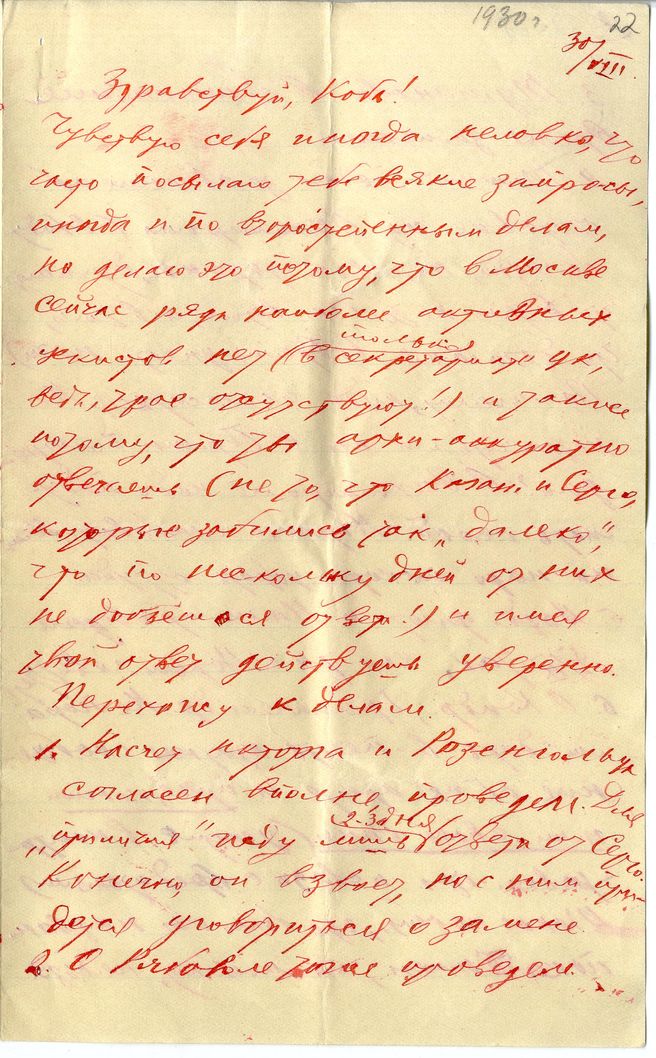 1930 г. 22
30/VIII.
Здравствуй, Коба!
Чувствую себя иногда неловко, что
часто посылаю тебе всякие запросы,
иногда и по второстепенным делам,
но делаю это потому, что в Москве
сейчас ряда наиболее активных
цекистов нет (в секретариате ЦК,
только
ведь, трое отсутствуют!) и также
потому, что ты архи-аккуратно
отвечаешь (не то, что Каган. и Серго,
которые забились так „далеко",
что по нескольку дней от них
не добьёшься ответа!) и имея
твой ответ действуешь уверенно.
Перехожу к делам.
1. Насчет наторга и Розенгольца
согласен вполне, проведем. Для
2-3 дня
„приличия" жду лишь ответа от Серго.
Конечно, он взвоет, но с ним при-
дется уговориться о замене.
2. О Рябовле тоже проведем.